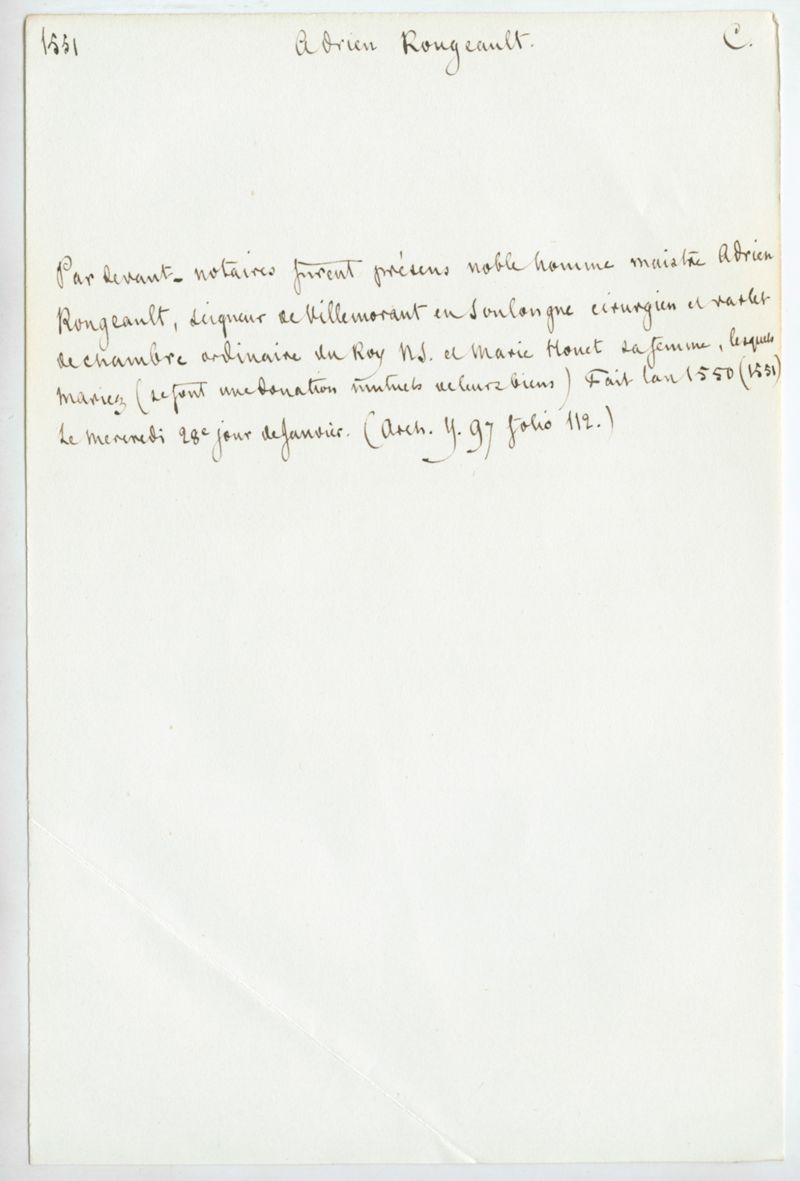 1551 Adrien Rongeault. C.
Par devant notaires furent présens noble homme maistre Adrien
Rongeault, seigneur de Villemorant en Soulongne cirurgien et varlet
de chambre ordinaire du Roy NS. et Marie Houet sa femme, lesquels
mariez (se font une donation mutuels de leurs biens) Fait lan 1550 (1551)
le mercredi 28e jour de Janvier. (Arch. Y. 97 folio 112.)